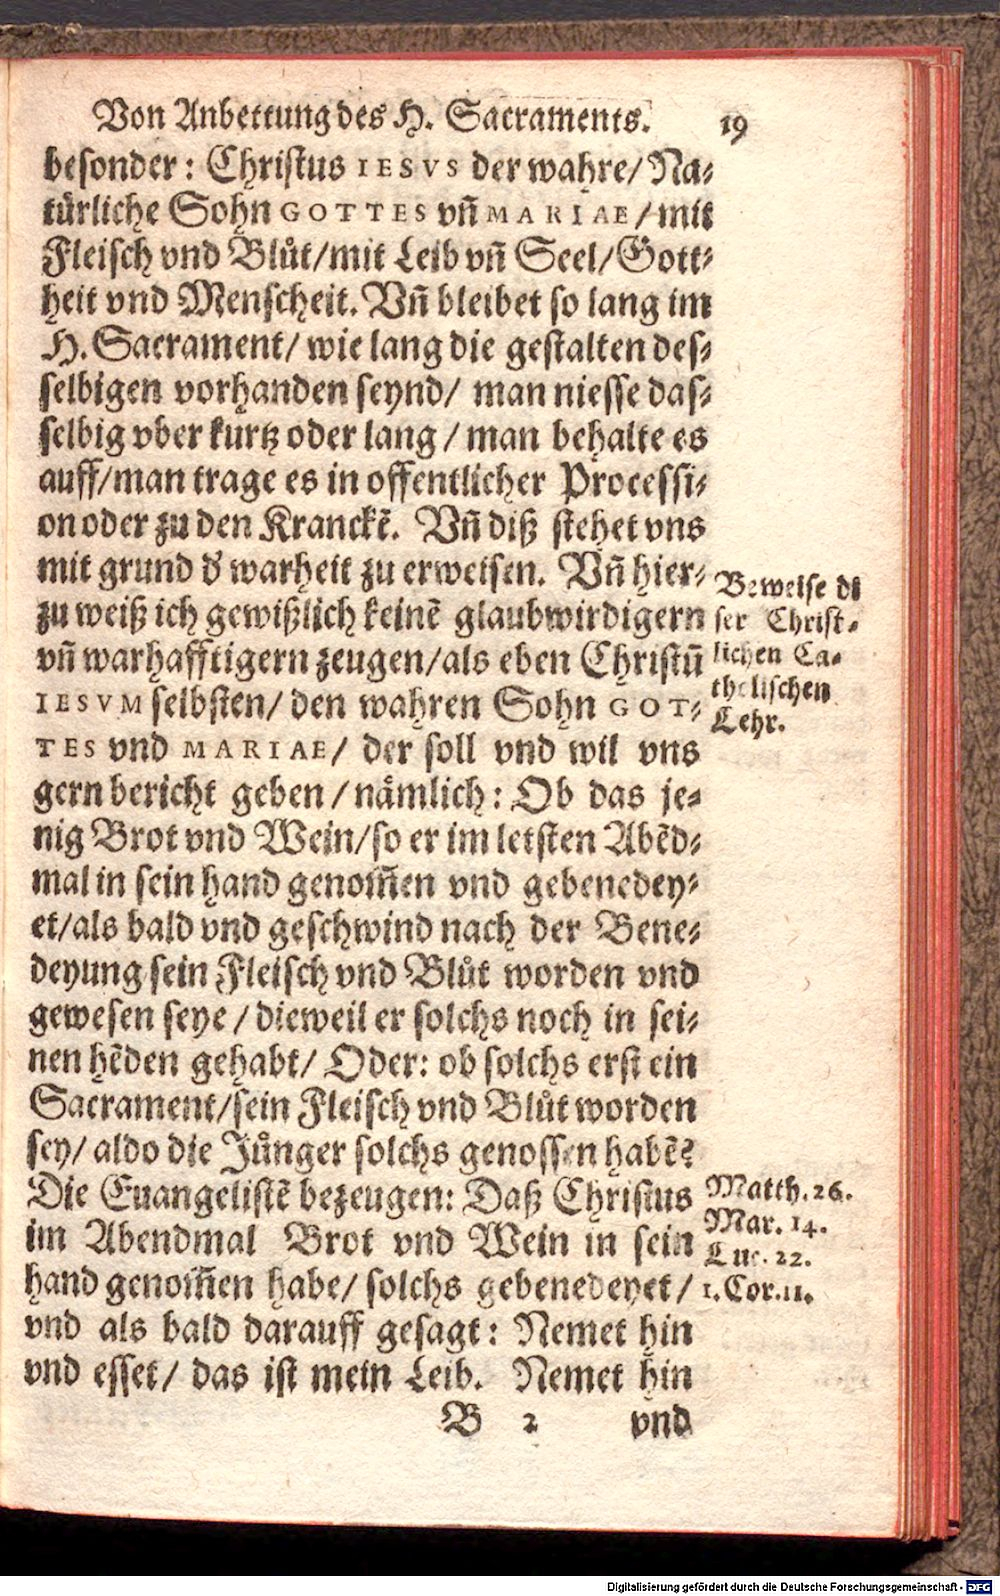 Von Anbettung des H. Sacraments. 19
besonder: Christus IESVS der wahre/ Na⸗
türliche Sohn GOTTES vñ MARIAE/ mit
Fleisch vnd Blůt/mit Leib vñ Seel/Gott⸗
heit vnd Menscheit. Vñ bleibet so lang im
H. Sacrament/ wie lang die gestalten des⸗
selbigen vorhanden seynd/ man niesse das⸗
selbig vber kurtz oder lang / man behalte es
auff/man trage es in offentlicher Processi⸗
on oder zu den Kranckẽ. Vñ diß stehet vns
mit grund d' warheit zu erweisen. Vñ hier⸗
zu weiß ich gewißlich keinẽ glaubwirdigern
vñ warhafftigern zeugen/als eben Christũ
IESVM selbsten/ den wahren Sohn GOT⸗
TES vnd MARIAE/ der soll vnd wil vns
gern bericht geben / nämlich: Ob das je⸗
nig Brot vnd Wein/so er im letsten Abẽd⸗
mal in sein hand genom̃en vnd gebenedey⸗
et/als bald vnd geschwind nach der Bene⸗
deyung sein Fleisch vnd Blůt worden vnd
gewesen seye / dieweil er solchs noch in sei⸗
nen hẽden gehabt/ Oder: ob solchs erst ein
Sacrament/sein Fleisch vnd Blůt worden
sey/ aldo die Jůnger solchs genossen habẽ?
Die Euangelistẽ bezeugen: Daß Christus
im Abendmal Brot vnd Wein in sein
hand genom̃en habe/ solchs gebenedeyet/
vnd als bald darauff gesagt: Nemet hin
vnd esset/ das ist mein Leib. Nemet hin
B 2 vnd
Beweise di
ser Christ⸗
lichen Ca⸗
tholischen
Lehr.
Matth. 26.
Mar. 14.
Luc. 22.
1. Cor. 11.
Digitalisierung gefördert durch die Deutsche Forschungsgemeinschaft - DFG